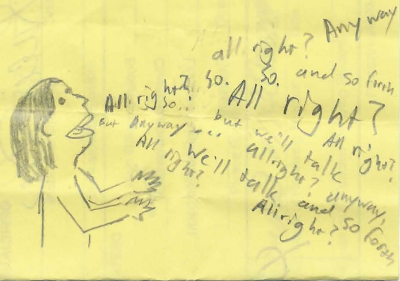 Any way
all right?
So. So. and so forth
All right?
So..
All right?
But Anyway... but we'll talk
All right?
All right?
allright? anyway,
we'll talk and so forth
Allright?